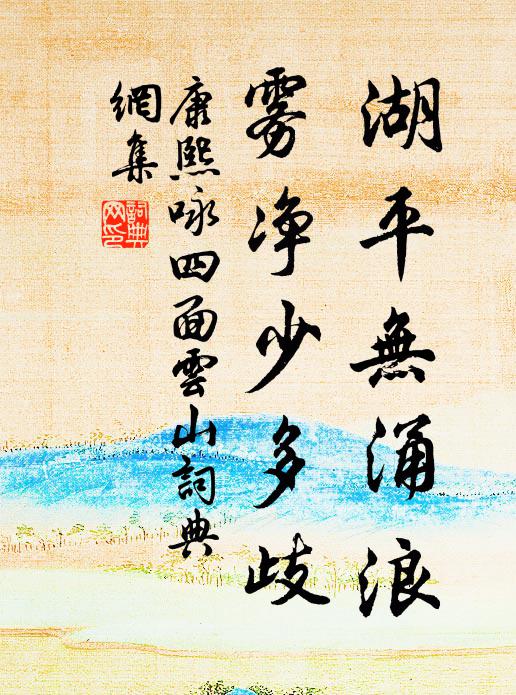 湖平無涌浪
雾净少多歧
康熙咏四面雲山詞典
網集
詞典網印